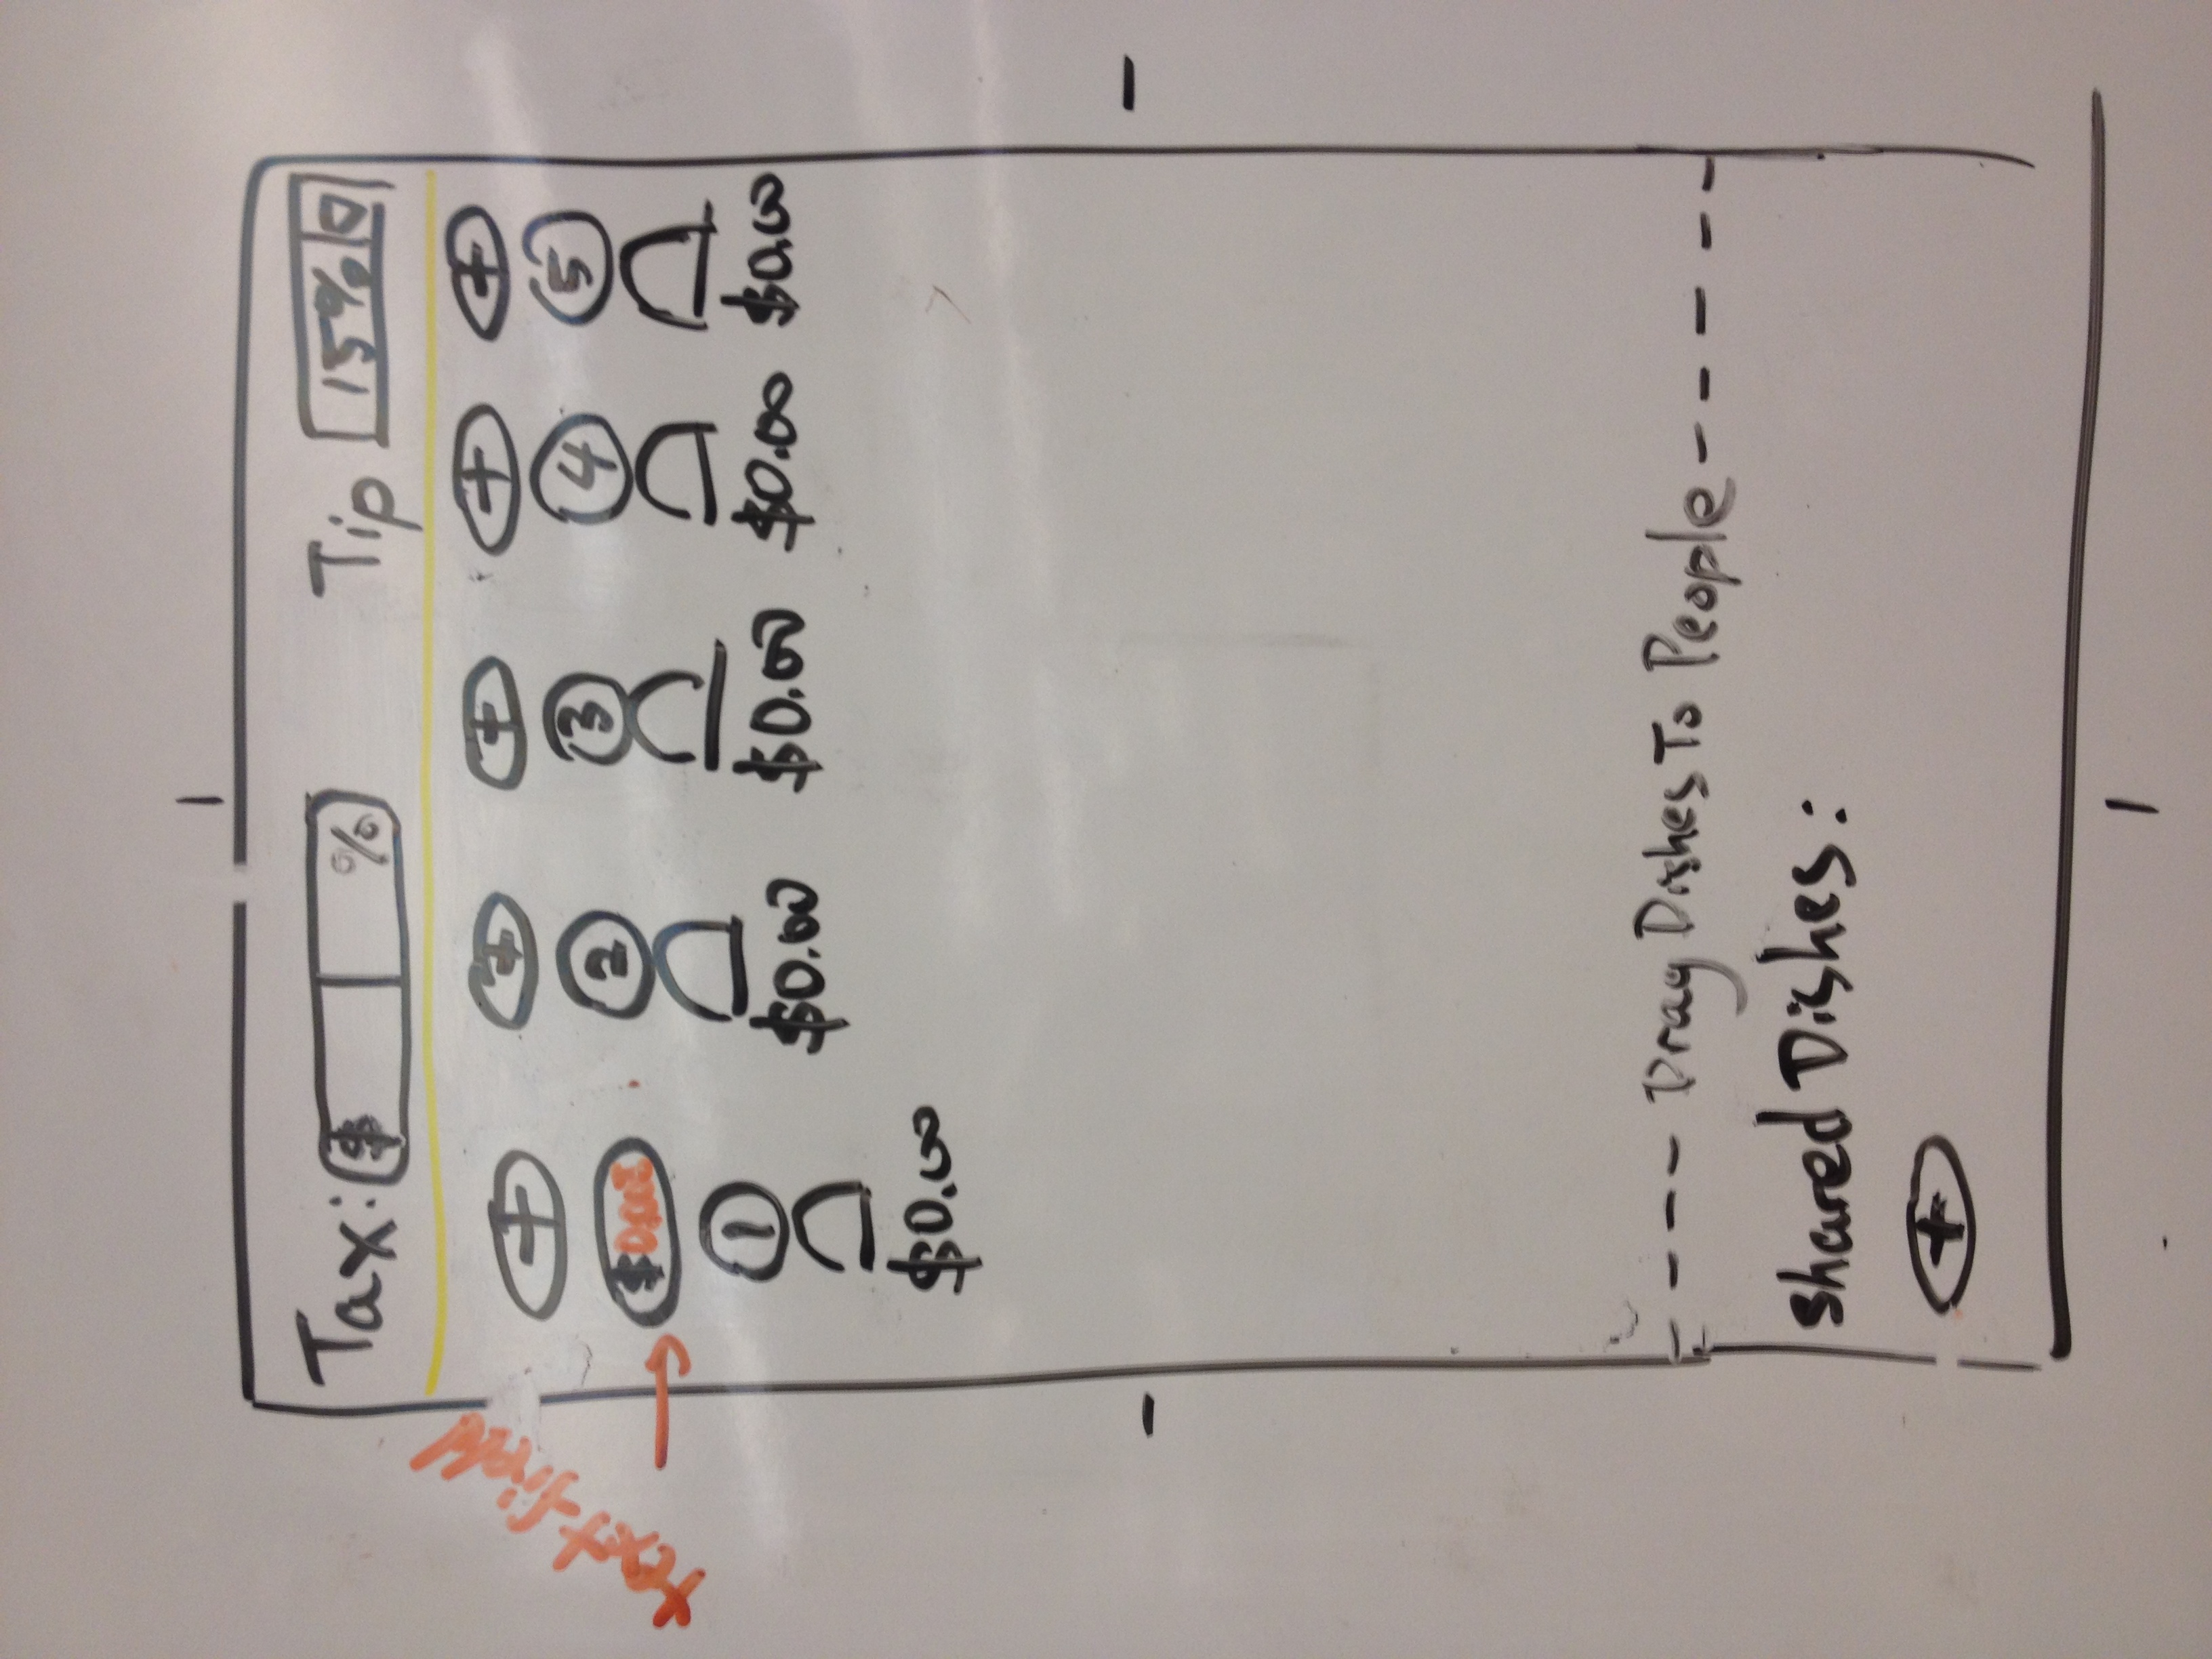 Tax: $ % Tip 15%
+ + + + +
text-field
$
1 2 3 4 5
$0.00 $0.00 $0.00 $0.00 $0.00
Drag Dishes To People
Shared Dishes:
+